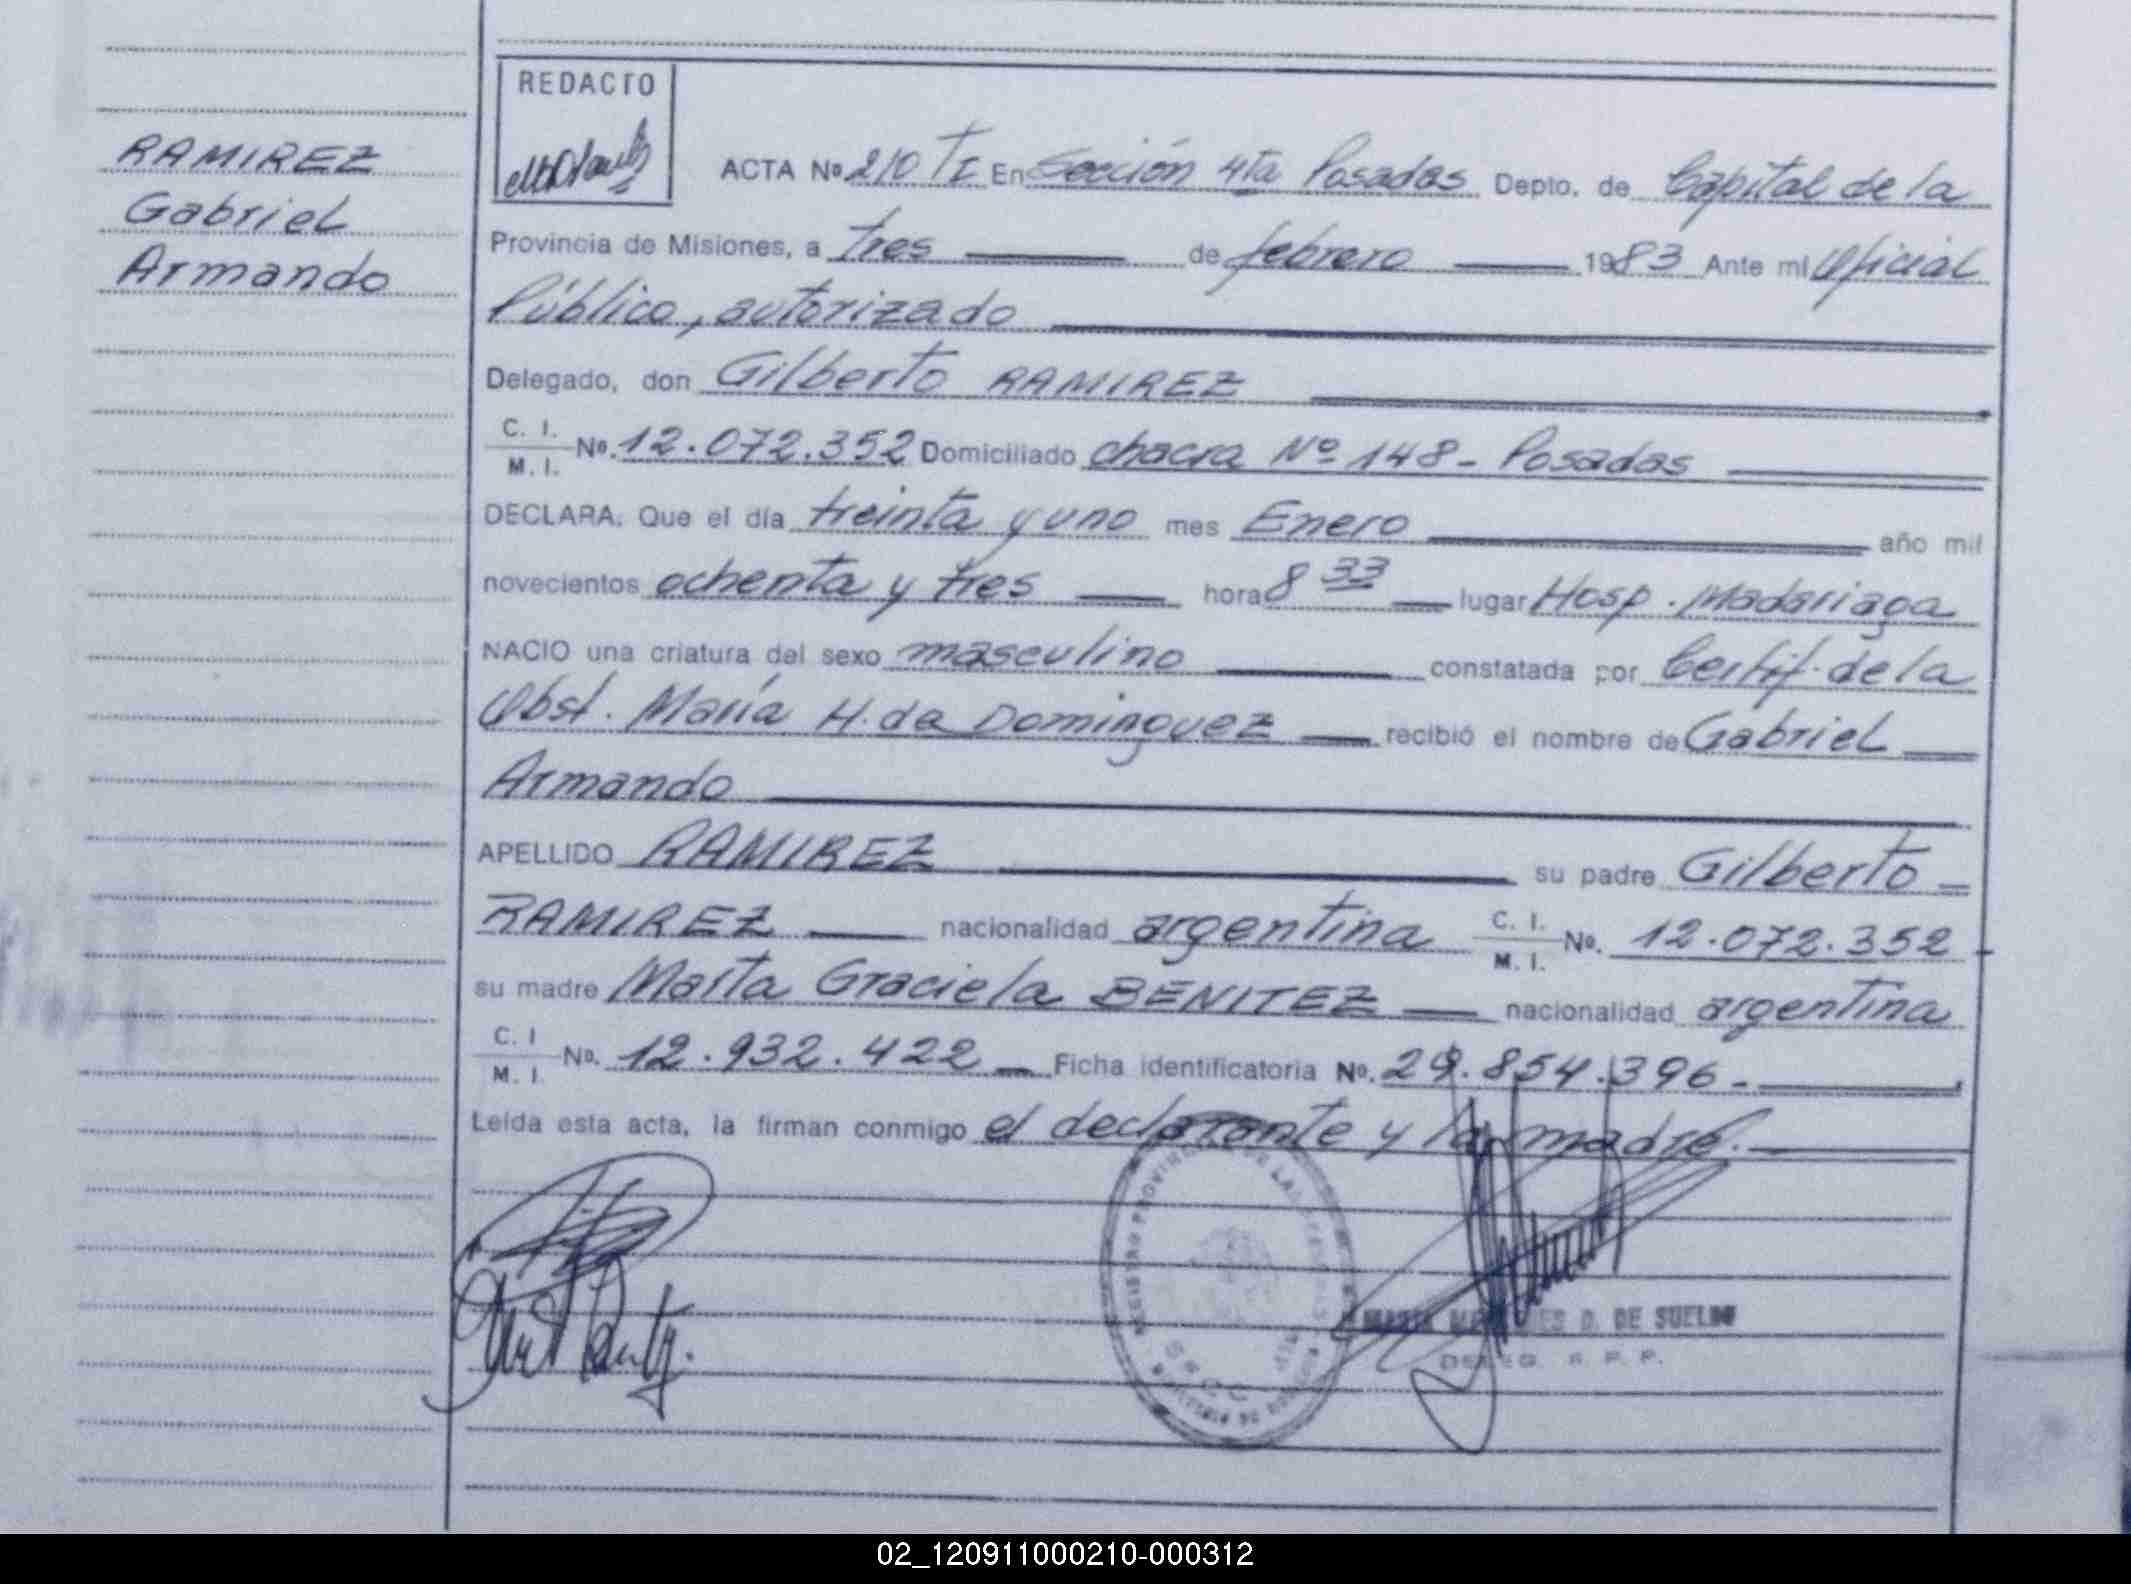 RAMIREZ
Gabriel
Armando
REDACTO
ACTA No 210 TI En Sección 4ta Posadas Depto. de Capital de la
Provincia de Misiones, a tres de febrero 1983 Ante mi Oficial
Público, autorizado
Delegado, don Gilberto RAMIREZ
C. I.
M. I. No. 12.072.352 Domiciliado chacra Nº 148 - Posadas
DECLARA: Que el día treinta y uno mes Enero año mil
novecientos ochenta y tres hora 8 33 lugar Hosp. Madariaga
NACIO una criatura del sexo masculino constatada por Certif. de la
Obst. María H. de Dominguez recibió el nombre de Gabriel
Armando
APELLIDO RAMIREZ su padre Gilberto
RAMIREZ nacionalidad argentina C. I.
M. I. No. 12.072.352
su madre Marta Graciela BENITEZ nacionalidad argentina
C. I
M. I No. 12.932.422 Ficha identificatoria No. 29.854.396.-
Leída esta acta, la firman conmigo el declarante y la madre.
REGISTRO PROVINCIAL DE LAS PERSONAS
D. DE SUELDO
DELEG. R. P. P.
02_120911000210-000312